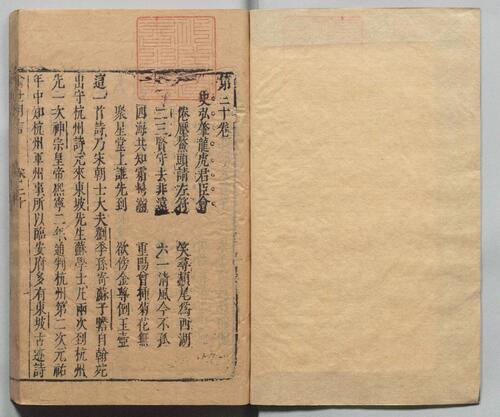 第二十卷
史弘肇龍虎君臣會
倦壓鰲頭請左符　笑尋頳尾為西湖
二三賢守去非遠　六一清風今不孤
四海共知霜鬢滿　重陽曾插菊花無
聚星堂上誰先到　欲傍金尊倒玉壺
這一首詩乃宋朝士大夫劉季孫寄蘇子瞻自翰苑
出守杭州詩元來東坡先生蘇學士凡兩次到杭州
先一次神宗皇帝熙寧二年通判杭州第二次元祐
年中知杭州軍州事所以臨安府多有東坡古迹詩